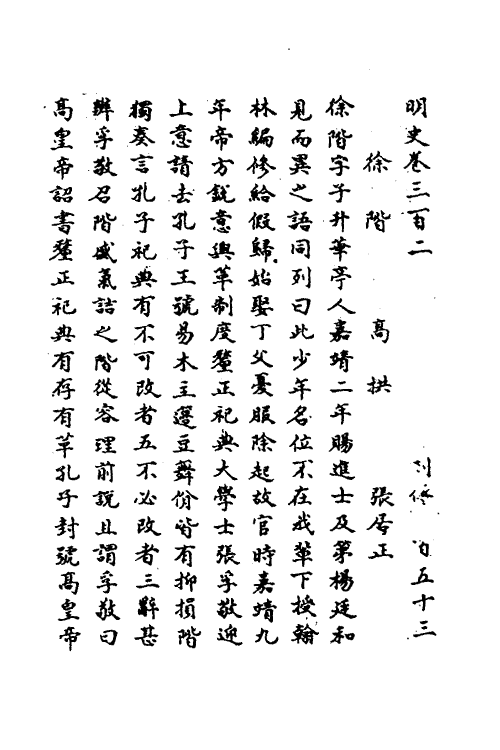 明史卷三百二 列傳一百五十三
徐階 高拱 張居正
徐階字子升華亭人嘉靖二年賜進士及第楊廷和
見而異之語同列曰此少年名位不在我輩下授翰
林編修給假歸始娶丁父憂服除起故官時嘉靖九
年帝方銳意興革制度釐正祀典大學士張孚敬迎
上意請去孔子王號易木主籩豆舞佾皆有抑損階
獨奏言孔子祀典有不可改者五不必改者三辭甚
辨孚敬召階盛氣詰之階從容理前說且謂孚敬曰
高皇帝詔書釐正祀典有存有革孔子封號高皇帝